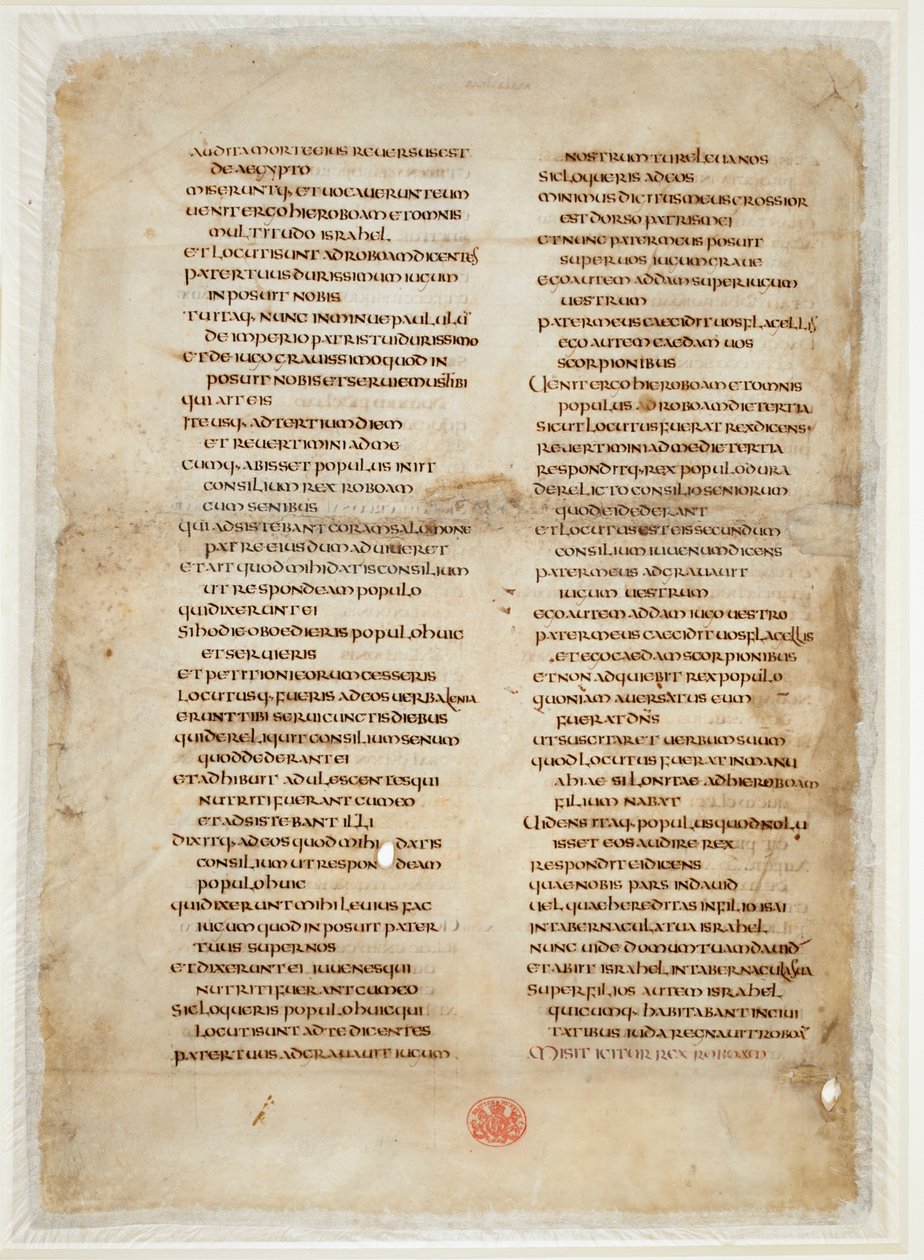 AUDITA MORTE EIUS REUERSUS EST
DE AEGYPTO
MISERUNTQ· ET UOCAUERUNT EUM
UENIT ERGO HIEROBOAM ET OMNIS
MULTITUDO ISRAHEL
ET LOCUTI SUNT AD ROBOAM DICENTES
PATER TUUS DURISSIMUM IUGUM
INPOSUIT NOBIS
TU ITAQ· NUNC INMINUE PAULULŪ
DE IMPERIO PATRIS TUI DURISSIMO
ET DE IUGO GRAUISSIMO QUOD IN
POSUIT NOBIS ET SERUIEMUS TIBI
QUI AIT EIS
ITE USQ· AD TERTIUM DIEM
ET REUERTIMINI AD ME
CUMQ· ABISSET POPULUS INIIT
CONSILIUM REX ROBOAM
CUM SENIBUS
QUI ADSISTEBANT CORAM SALOMONE
PATRE EIUS DUM ADUIUERET
ET AIT QUOD MIHI DATIS CONSILIUM
UT RESPONDEAM POPULO
QUI DIXERUNT EI
SI HODIE OBOEDIERIS POPULO HUIC
ET SERUIERIS
ET PETITIONI EORUM CESSERIS
LOCUTUSQ· FUERIS AD EOS UERBA LENIA
ERUNT TIBI SERUI CUNCTIS DIEBUS
QUI DERELIQUIT CONSILIUM SENUM
QUOD DEDERANT EI
ET ADHIBUIT ADULESCENTES QUI
NUTRITI FUERANT CUM EO
ET ADSISTEBANT ILLI
DIXITQ· AD EOS QUOD MIHI DATIS
CONSILIUM UT RESPONDEAM
POPULO HUIC
QUI DIXERUNT MIHI LEUIUS FAC
IUGUM QUOD INPOSUIT PATER
TUUS SUPER NOS
ET DIXERUNT EI IUUENES QUI
NUTRITI FUERANT CUM EO
SIC LOQUERIS POPULO HUIC QUI
LOCUTI SUNT AD TE DICENTES
PATER TUUS ADGRAUAUIT IUGUM
NOSTRUM TU RELEUA NOS
SIC LOQUERIS AD EOS
MINIMUS DIGITUS MEUS GROSSIOR
EST DORSO PATRIS MEI
ET NUNC PATER MEUS POSUIT
SUPER UOS IUGUM GRAUE
EGO AUTEM ADDAM SUPER IUGUM
UESTRUM
PATER MEUS CAECIDIT UOS FLAGELLIS
EGO AUTEM CAEDAM UOS
SCORPIONIBUS
UENIT ERGO HIEROBOAM ET OMNIS
POPULUS AD ROBOAM DIE TERTIA
SICUT LOCUTUS FUERAT REX DICENS·
REUERTIMINI AD ME DIE TERTIA
RESPONDITQ· REX POPULO DURA
DERELICTO CONSILIO SENIORUM
QUOD EI DEDERANT
ET LOCUTUS EST EIS SECUNDUM
CONSILIUM IUUENUM DICENS
PATER MEUS ADGRAUAUIT
IUGUM UESTRUM
EGO AUTEM ADDAM IUGO UESTRO
PATER MEUS CAECIDIT UOS FLAGELLIS
ET EGO CAEDAM SCORPIONIBUS
ET NON ADQUIEBIT REX POPULO
QUONIAM AUERSATUS EUM
FUERAT DN̄S
UT SUSCITARET UERBUM SUUM
QUOD LOCUTUS FUERAT IN MANU
AHIAE SILONITAE AD HIEROBOAM
FILIUM NABAT
UIDENS ITAQ· POPULUS QUOD NOLU
ISSET EOS AUDIRE REX
RESPONDIT EI DICENS
QUAE NOBIS PARS IN DAUID
UEL QUAE HEREDITAS IN FILIO ISAI
IN TABERNACULA TUA ISRAHEL
NUNC UIDE DOMUM TUAM DAUID
ET ABIIT ISRAHEL IN TABERNACULA SUA
SUPER FILIOS AUTEM ISRAHEL
QUICUMQ· HABITABANT IN CIUI
TATIBUS IUDA REGNAUIT ROBOĀ
MISIT IGITUR REX ROBOAM